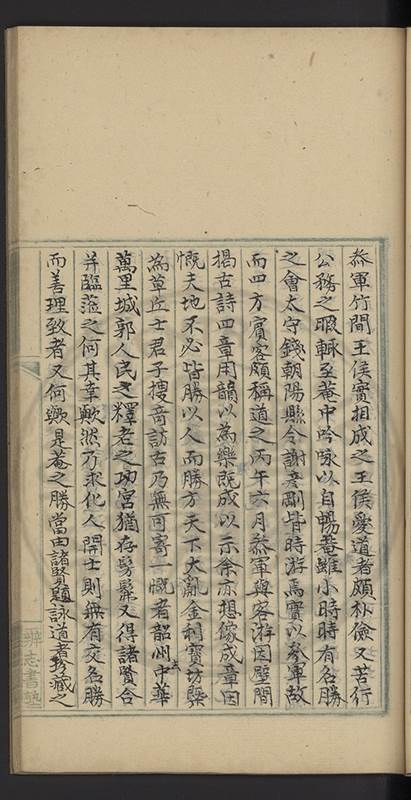 叅軍竹間王侯實相成之王侯愛道者頗朴儉又苦行
公務之暇輙至菴中吟咏以自暢菴雖小時時有名勝
之會太守錢朝陽縣令謝彥剛皆時游焉實以叅軍故
而四方賓客頗稱道之丙午六月叅軍與客游因壁間
揭古詩四章用韻以為樂既成以示徐亦想像成章因
慨夫地不必皆勝以人而勝方天下大亂金刹寶坊槩
為草丘士君子搜奇訪古乃無可寄一慨者韶州中華
萬里城郭人民之釋老之功宮猶存髣髴又得諸賢合
并臨蒞之何其幸歟然乃求化人開士則無有交名勝
而善理致者又何歟是菴之勝當由諸賢題詠道者珍藏之
樂志書塾